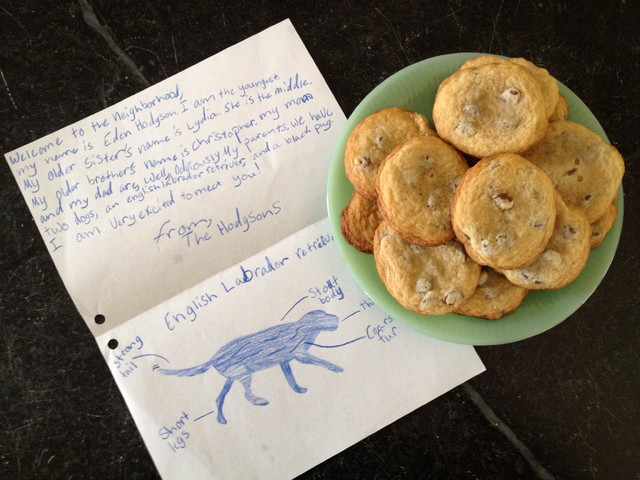 Welcome to the Neighborhood,
my name is Eden Hodgson. I am the youngest.
My older sister's name is Lydia. She is the middle.
My older brother's name is Christopher. my mom
and my dad are, well, obviously My parents. We have
two dogs, an english labrador retriever, and a black pug.
I am very excited to meet you!
From,
The Hodgsons
English Labrador retriev
Stout
body
Strong
tail
Coars
fur
Short
legs